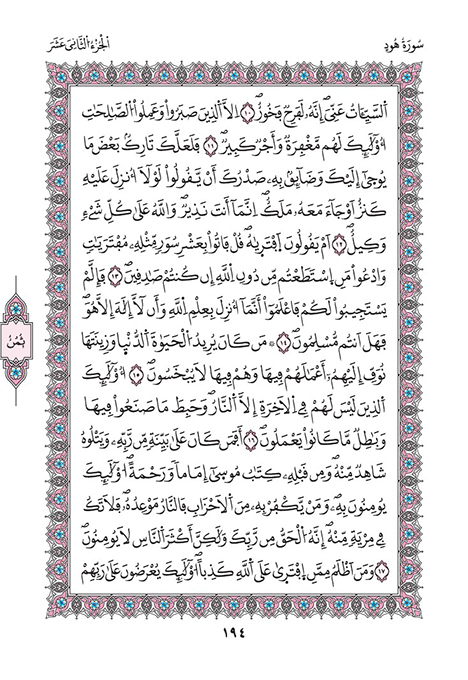 سُورَةُ هُودٍ
اَ۬لْجُزْءُ اُ۬لثَّانِيَ عَشَرَ
اَ۬لسَّيِّـَٔاتُ عَنِّيَۖ إِنَّهُۥ لَفَرِحٞ فَخُورٌۖ ١٠ اِلَّا اَ۬لذِينَ صَبَرُواْ وَعَمِلُواْ اُ۬لصَّٰلِحَٰتِ
أُوْلَٰٓئِكَ لَهُم مَّغْفِرَةٞ وَأَجْرٞ كَبِيرٞۖ ١١ فَلَعَلَّكَ تَارِكُۢ بَعْضَ مَا
يُوح۪يٰٓ إِلَيْكَ وَضَآئِقُۢ بِهِۦ صَدْرُكَ أَنْ يَّقُولُواْ لَوْلَآ أُنزِلَ عَلَيْهِ
كَنزٌ اَوْ جَآءَ مَعَهُۥ مَلَكٌۖ اِنَّمَآ أَنتَ نَذِيرٞۖ وَاللَّهُ عَلَىٰ كُلِّ شَےْءٖ
وَكِيلٌۖ ١٢ اَمْ يَقُولُونَ اَ۪فْتَر۪يٰهُۖ قُلْ فَاتُواْ بِعَشْرِ سُوَرٖ مِّثْلِهِۦ مُفْتَرَيَٰتٖ
وَادْعُواْ مَنِ اِ۪سْتَطَعْتُم مِّن دُونِ اِ۬للَّهِ إِن كُنتُمْ صَٰدِقِينَۖ ١٣ فَإِلَّمْ
يَسْتَجِيبُواْ لَكُمْ فَاعْلَمُوٓاْ أَنَّمَآ أُنزِلَ بِعِلْمِ اِ۬للَّهِ وَأَن لَّآ إِلَٰهَ إِلَّا هُوَۖ
فَهَلَ اَنتُم مُّسْلِمُونَۖ ١٤ مَن كَانَ يُرِيدُ اُ۬لْحَيَوٰةَ اَ۬لدُّنْي۪ا وَزِينَتَهَا
نُوَفِّ إِلَيْهِمُۥٓ أَعْمَٰلَهُمْ فِيهَا وَهُمْ فِيهَا لَا يُبْخَسُونَۖ ١٥ أُوْلَٰٓئِكَ
اَ۬لذِينَ لَيْسَ لَهُمْ فِے اِ۬لَاخِرَةِ إِلَّا اَ۬لنَّارُۖ وَحَبِطَ مَا صَنَعُواْ فِيهَا
وَبَٰطِلٞ مَّا كَانُواْ يَعْمَلُونَۖ ١٦ أَفَمَن كَانَ عَلَىٰ بَيِّنَةٖ مِّن رَّبِّهِۦ وَيَتْلُوهُ
شَاهِدٞ مِّنْهُۖ وَمِن قَبْلِهِۦ كِتَٰبُ مُوس۪يٰٓ إِمَاماٗ وَرَحْمَةًۖ اُوْلَٰٓئِكَ
يُومِنُونَ بِهِۦۖ وَمَنْ يَّكْفُرْ بِهِۦ مِنَ اَ۬لَاحْزَابِ فَالنَّارُ مَوْعِدُهُۥۖ فَلَا تَكُ
فِے مِرْيَةٖ مِّنْهُۖ إِنَّهُ اُ۬لْحَقُّ مِن رَّبِّكَ وَلَٰكِنَّ أَكْثَرَ اَ۬لنَّاسِ لَا يُومِنُونَۖ
١٧ وَمَنَ اَظْلَمُ مِمَّنِ اِ۪فْتَر۪يٰ عَلَى اَ۬للَّهِ كَذِباًۖ اُوْلَٰٓئِكَ يُعْرَضُونَ عَلَىٰ رَبِّهِمْ
ثُمُنٌ
١٩٤